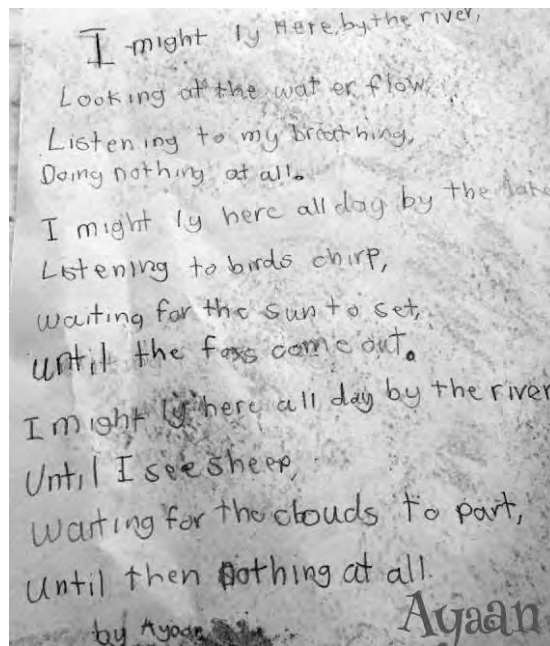 I might ly Here, by the river,
Looking at the wat er flow,
Listening to my breathing,
Doing nothing at all.
I might ly here all day by the lake
Listening to birds chirp,
waiting for the sun to set,
until the foxs come out.
I might ly here all day by the river
Until I see sheep,
Waiting for the clouds to part,
Until then nothing at all.
by Ayaan
Ayaan